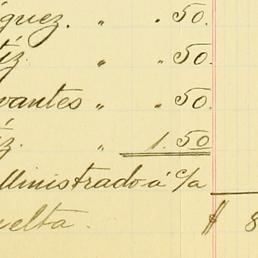 íguez. " " .50.
tíz. " " .50.
vantes " " .50.
íz. " 1.50
ministrado á c/a
uelta. $ 8